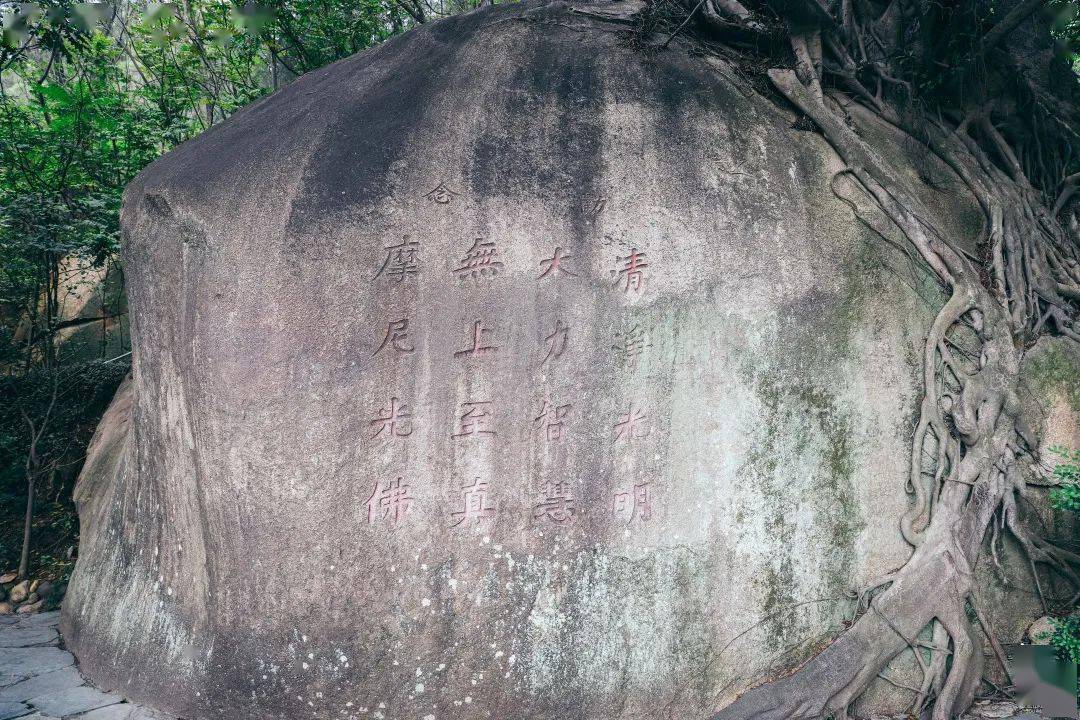 念
清淨光明
大力智慧
無上至真
摩尼光佛